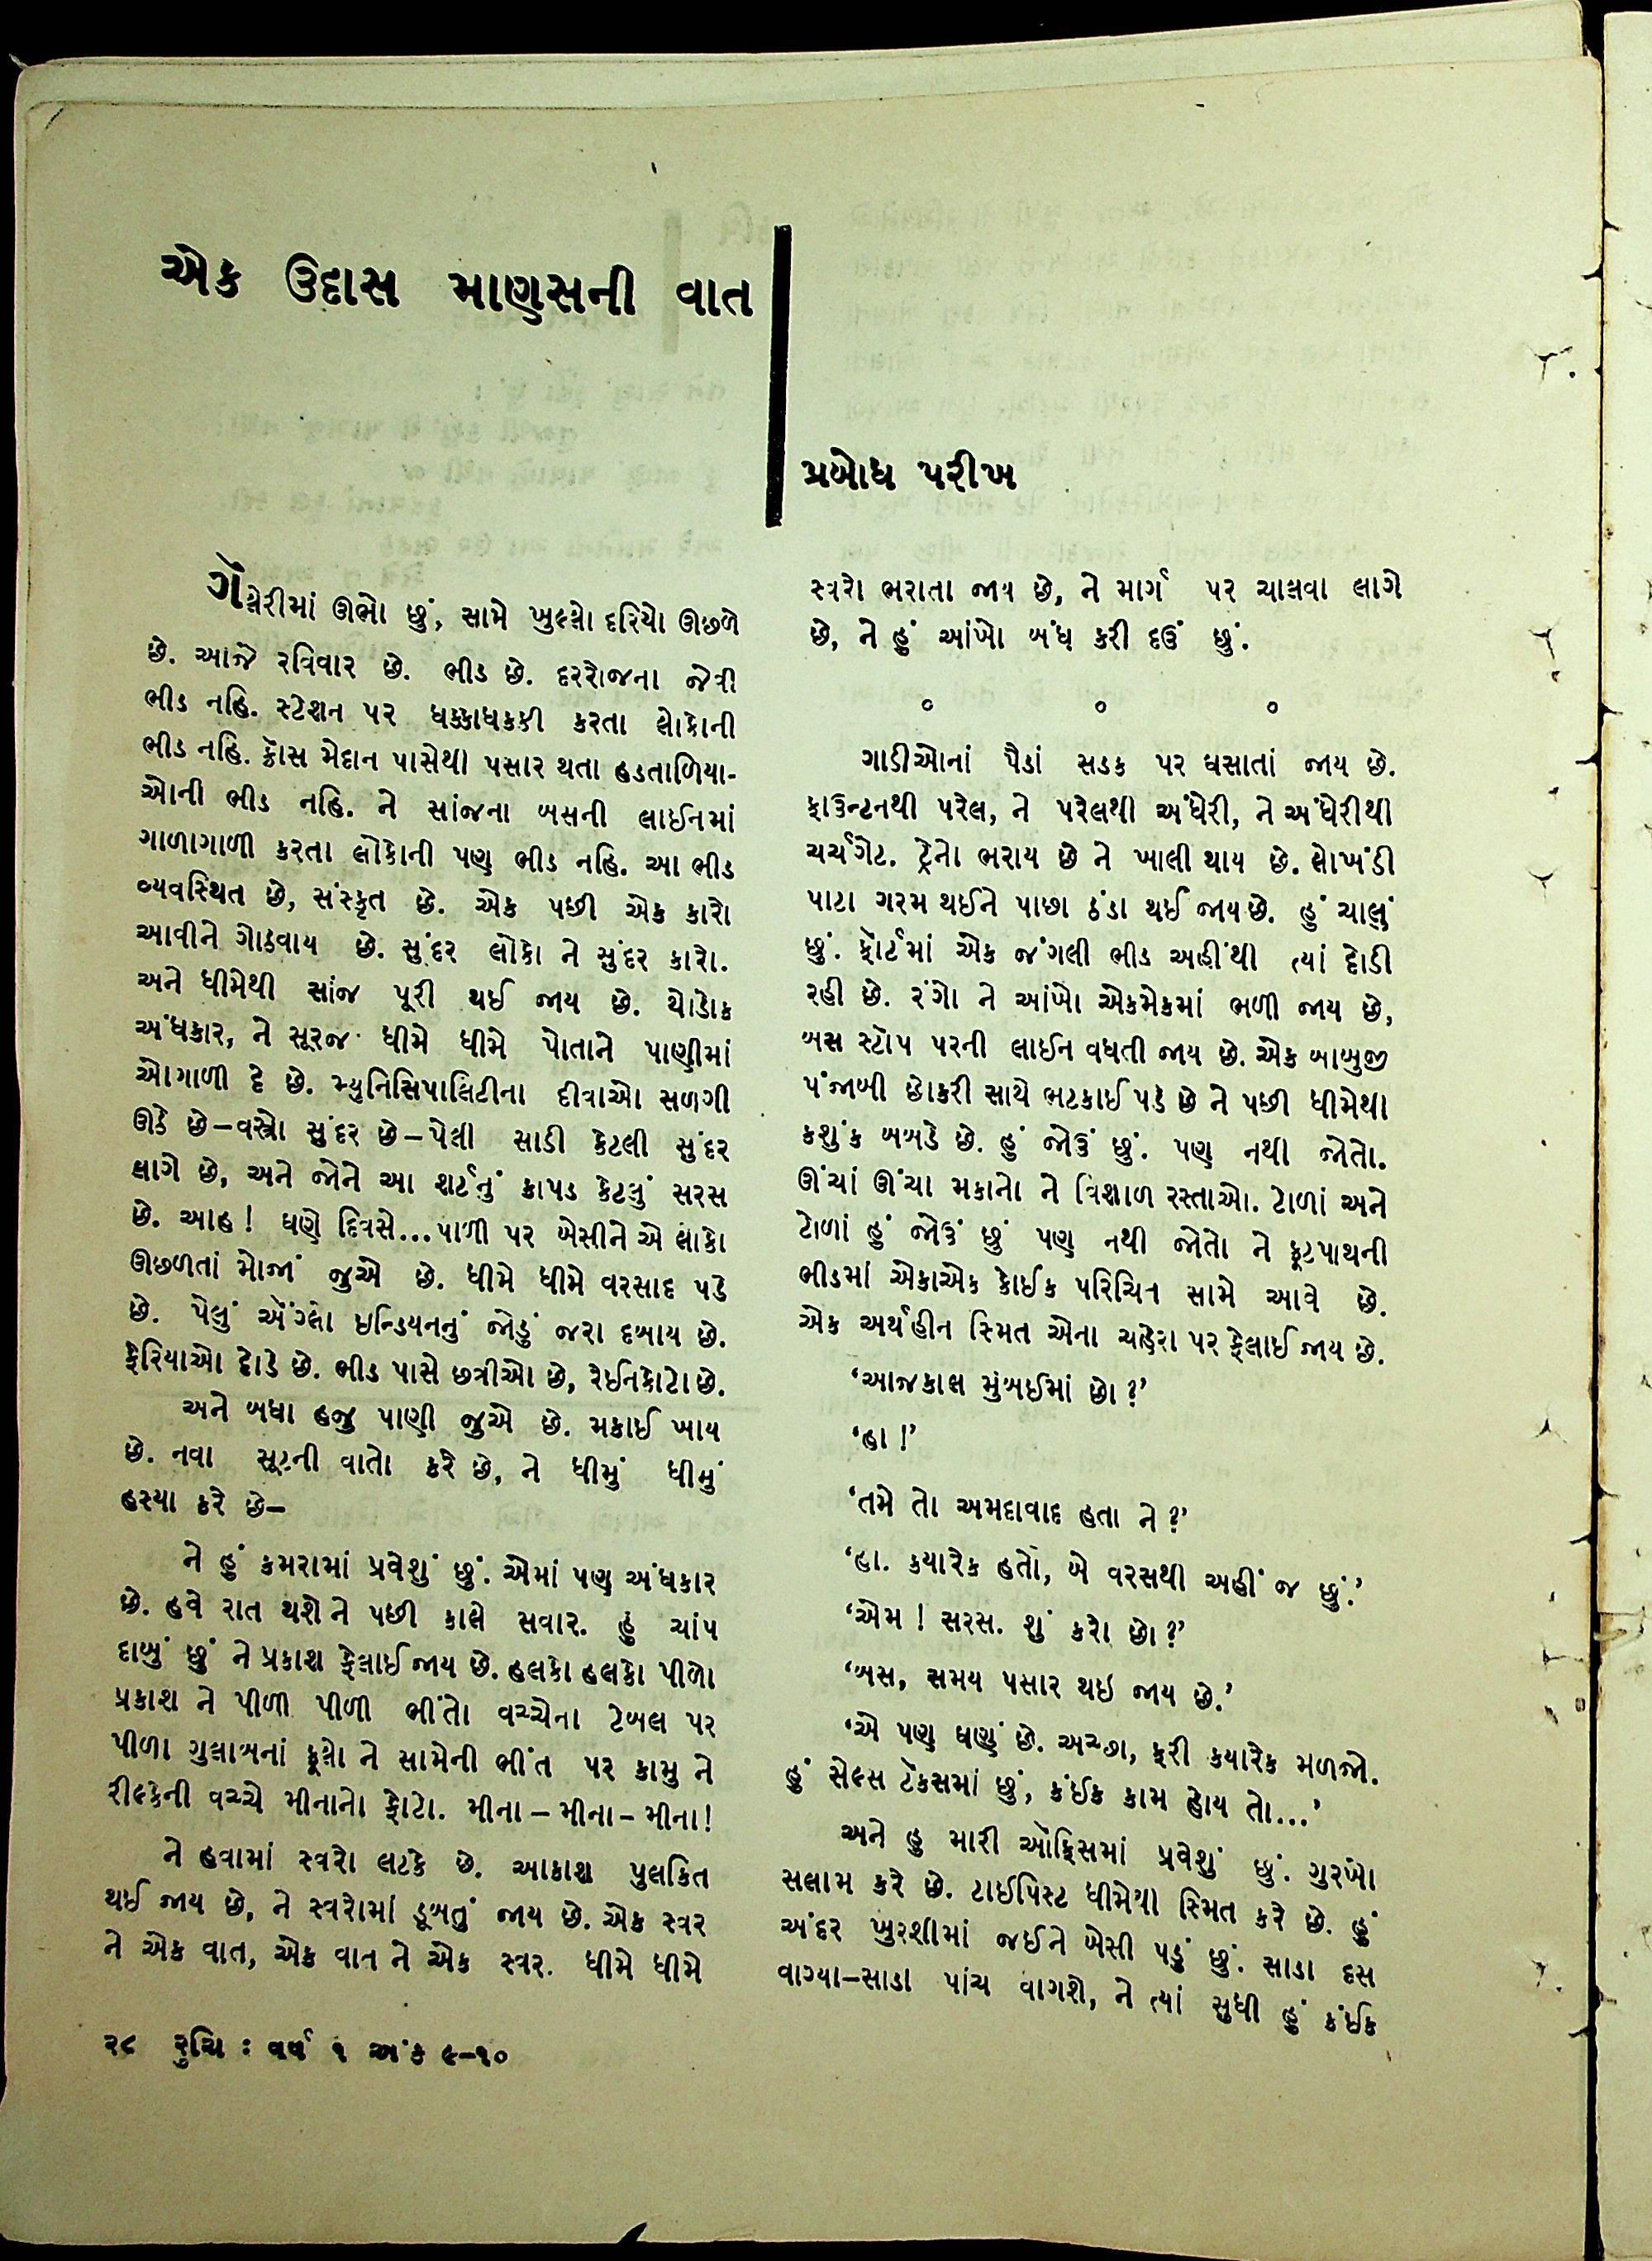 એક ઉદાસ માણસની વાત
પ્રબોધ પરીખ
ગૅલેરીમાં ઊભો છું, સામે ખુલ્લો દરિયો ઊછળે
છે. આજે રવિવાર છે. ભીડ છે. દરરોજના જેવી
ભીડ નહિ. સ્ટેશન પર ધક્કાધક્કી કરતા લોકોની
ભીડ નહિ. ક્રૉસ મેદાન પાસેથી પસાર થતા હડતાળિયા-
ઓની ભીડ નહિ. ને સાંજના બસની લાઈનમાં
ગાળાગાળી કરતા લોકોની પણ ભીડ નહિ. આ ભીડ
વ્યવસ્થિત છે, સંસ્કૃત છે. એક પછી એક કારો
આવીને ગોઠવાય છે. સુંદર લોકો ને સુંદર કારો.
અને ધીમેથી સાંજ પૂરી થઈ જાય છે. થોડોક
અંધકાર, ને સૂરજ ધીમે ધીમે પોતાને પાણીમાં
ઓગાળી દે છે. મ્યુનિસિપાલિટીના દીવાઓ સળગી
ઊઠે છે–વસ્ત્રો સુંદર છે–પેલી સાડી કેટલી સુંદર
લાગે છે, અને જોને આ શર્ટનું કાપડ કેટલું સરસ
છે. આહ! ઘણે દિવસે...પાળી પર બેસીને એ લોકો
ઊછળતાં મોજાં જુએ છે. ધીમે ધીમે વરસાદ પડે
છે. પેલું ઍંગ્લો ઇન્ડિયનનું જોડું જરા દબાય છે.
ફેરિયાઓ દોડે છે. ભીડ પાસે છત્રીઓ છે, રેઈનકોટો છે.
અને બધા હજુ પાણી જુએ છે. મકાઈ ખાય
છે. નવા સૂટની વાતો કરે છે, ને ધીમું ધીમું
હસ્યા કરે છે–
ને હું કમરામાં પ્રવેશું છું. એમાં પણ અંધકાર
છે. હવે રાત થશે ને પછી કાલે સવાર. હુ ચાંપ
દાબું છું ને પ્રકાશ ફેલાઈ જાય છે. હલકો હલકો પીળો
પ્રકાશ ને પીળી પીળી ભીંતો વચ્ચેના ટેબલ પર
પીળા ગુલાબનાં ફૂલો ને સામેની ભીંત પર કામુ ને
રીલ્કેની વચ્ચે મીનાનો ફોટો. મીના – મીના – મીના!
ને હવામાં સ્વરો લટકે છે. આકાશ પુલકિત
થઈ જાય છે, ને સ્વરોમાં ડૂબતું જાય છે. એક સ્વર
ને એક વાત, એક વાત ને એક સ્વર. ધીમે ધીમે
૨૮ રુચિ : વર્ષ ૧ અંક ૯–૧૦
સ્વરો ભરાતા જાય છે, ને માર્ગ પર ચાલવા લાગે
છે, ને હું આંખો બંધ કરી દઉં છું.
° ° °
ગાડીઓનાં પૈડાં સડક પર ઘસાતાં જાય છે.
ફાઉન્ટનથી પરેલ, ને પરેલથી અંધેરી, ને અંધેરીથી
ચર્ચગેટ. ટ્રેનો ભરાય છે ને ખાલી થાય છે. લોખંડી
પાટા ગરમ થઈને પાછા ઠંડા થઈ જાય છે. હું ચાલું
છું. ફોર્ટમાં એક જંગલી ભીડ અહીંથી ત્યાં દોડી
રહી છે. રંગો ને આંખો એકમેકમાં ભળી જાય છે,
બસ સ્ટૉપ પરની લાઈન વધતી જાય છે. એક બાબુજી
પંજાબી છોકરી સાથે ભટકાઈ પડે છે ને પછી ધીમેથી
કશુંક બબડે છે. હું જોઉં છું. પણ નથી જોતો.
ઊંચાં ઊંચા મકાનો ને વિશાળ રસ્તાઓ. ટોળાં અને
ટોળાં હું જોઉં છું પણ નથી જોતો ને ફૂટપાથની
ભીડમાં એકાએક કોઈક પરિચિત સામે આવે છે.
એક અર્થહીન સ્મિત એના ચહેરા પર ફેલાઈ જાય છે.
‘આજકાલ મુંબઈમાં છો ?’
‘હા !’
‘તમે તો અમદાવાદ હતા ને ?’
‘હા. કયારેક હતો, બે વરસથી અહીં જ છું.’
‘એમ ! સરસ. શું કરો છો ?’
‘બસ, સમય પસાર થઇ જાય છે.’
‘એ પણ ઘણું છે. અચ્છા, ફરી કયારેક મળજો.
હું સેલ્સ ટૅકસમાં છું, કંઈક કામ હોય તો...’
અને હુ મારી ઑફિસમાં પ્રવેશું છું. ગુરખો
સલામ કરે છે. ટાઈપિસ્ટ ધીમેથી સ્મિત કરે છે. હું
અંદર ખુરશીમાં જઈને બેસી પડું છું. સાડા દસ
વાગ્યા–સાડા પાંચ વાગશે, ને ત્યાં સુધી હું કંઈક